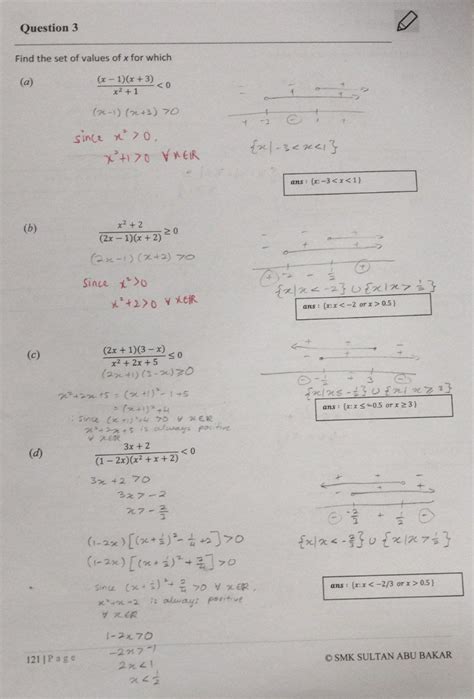 Question 3
Find the set of values of x for which
(a) (x − 1)(x + 3) / x² + 1 < 0
(x-1)(x+3) >0
since x² >0,
x²+1>0 ∀ x∈R
{x|-3<x<1}
ans : {x: −3 < x < 1}
(b) x² + 2 / (2x − 1)(x + 2) ≥ 0
(2x-1)(x+2) >0
since x² >0
x²+2>0 ∀ x∈R
{x|x<-2} ∪ {x|x>½}
ans : {x: x < −2 or x > 0.5}
(c) (2x + 1)(3 − x) / x² + 2x + 5 ≤ 0
(2x+1)(3-x) ≥0
x²+2x+5 = (x+1)²-1+5
= (x+1)²+4
∴ since (x+1)²+4 >0 ∀ x∈R
x²+2x+5 is always positive
∀ x∈R
{x|x≤-½} ∪ {x|x≥3}
ans : {x: x ≤ −0.5 or x ≥ 3}
(d) 3x + 2 / (1 − 2x)(x² + x + 2) < 0
3x+2>0
3x>-2
x>-2/3
(1-2x)[(x+½)²-¼+2]>0
(1-2x)[(x+½)²+7/4]>0
{x|x<-2/3} ∪ {x|x>½}
since (x+½)²+7/4 >0 ∀ x∈R,
x²+x-2 is always positive
∀ x∈R
ans : {x: x < −2/3 or x > 0.5}
1-2x>0
-2x>-1
2x<1
x<½
121 | Page
© SMK SULTAN ABU BAKAR